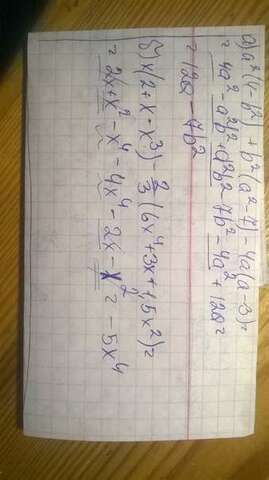 а) a²(4-b²) + b²(a²-7) - 4a(a-3)=
= 4a² - a²b² + a²b² - 7b² - 4a² + 12a =
= 12a - 7b²
б) x(2+x-x³) - ⅔(6x⁴+3x+1,5x²)=
= 2x + x² - x⁴ - 4x⁴ - 2x - x² = -5x⁴